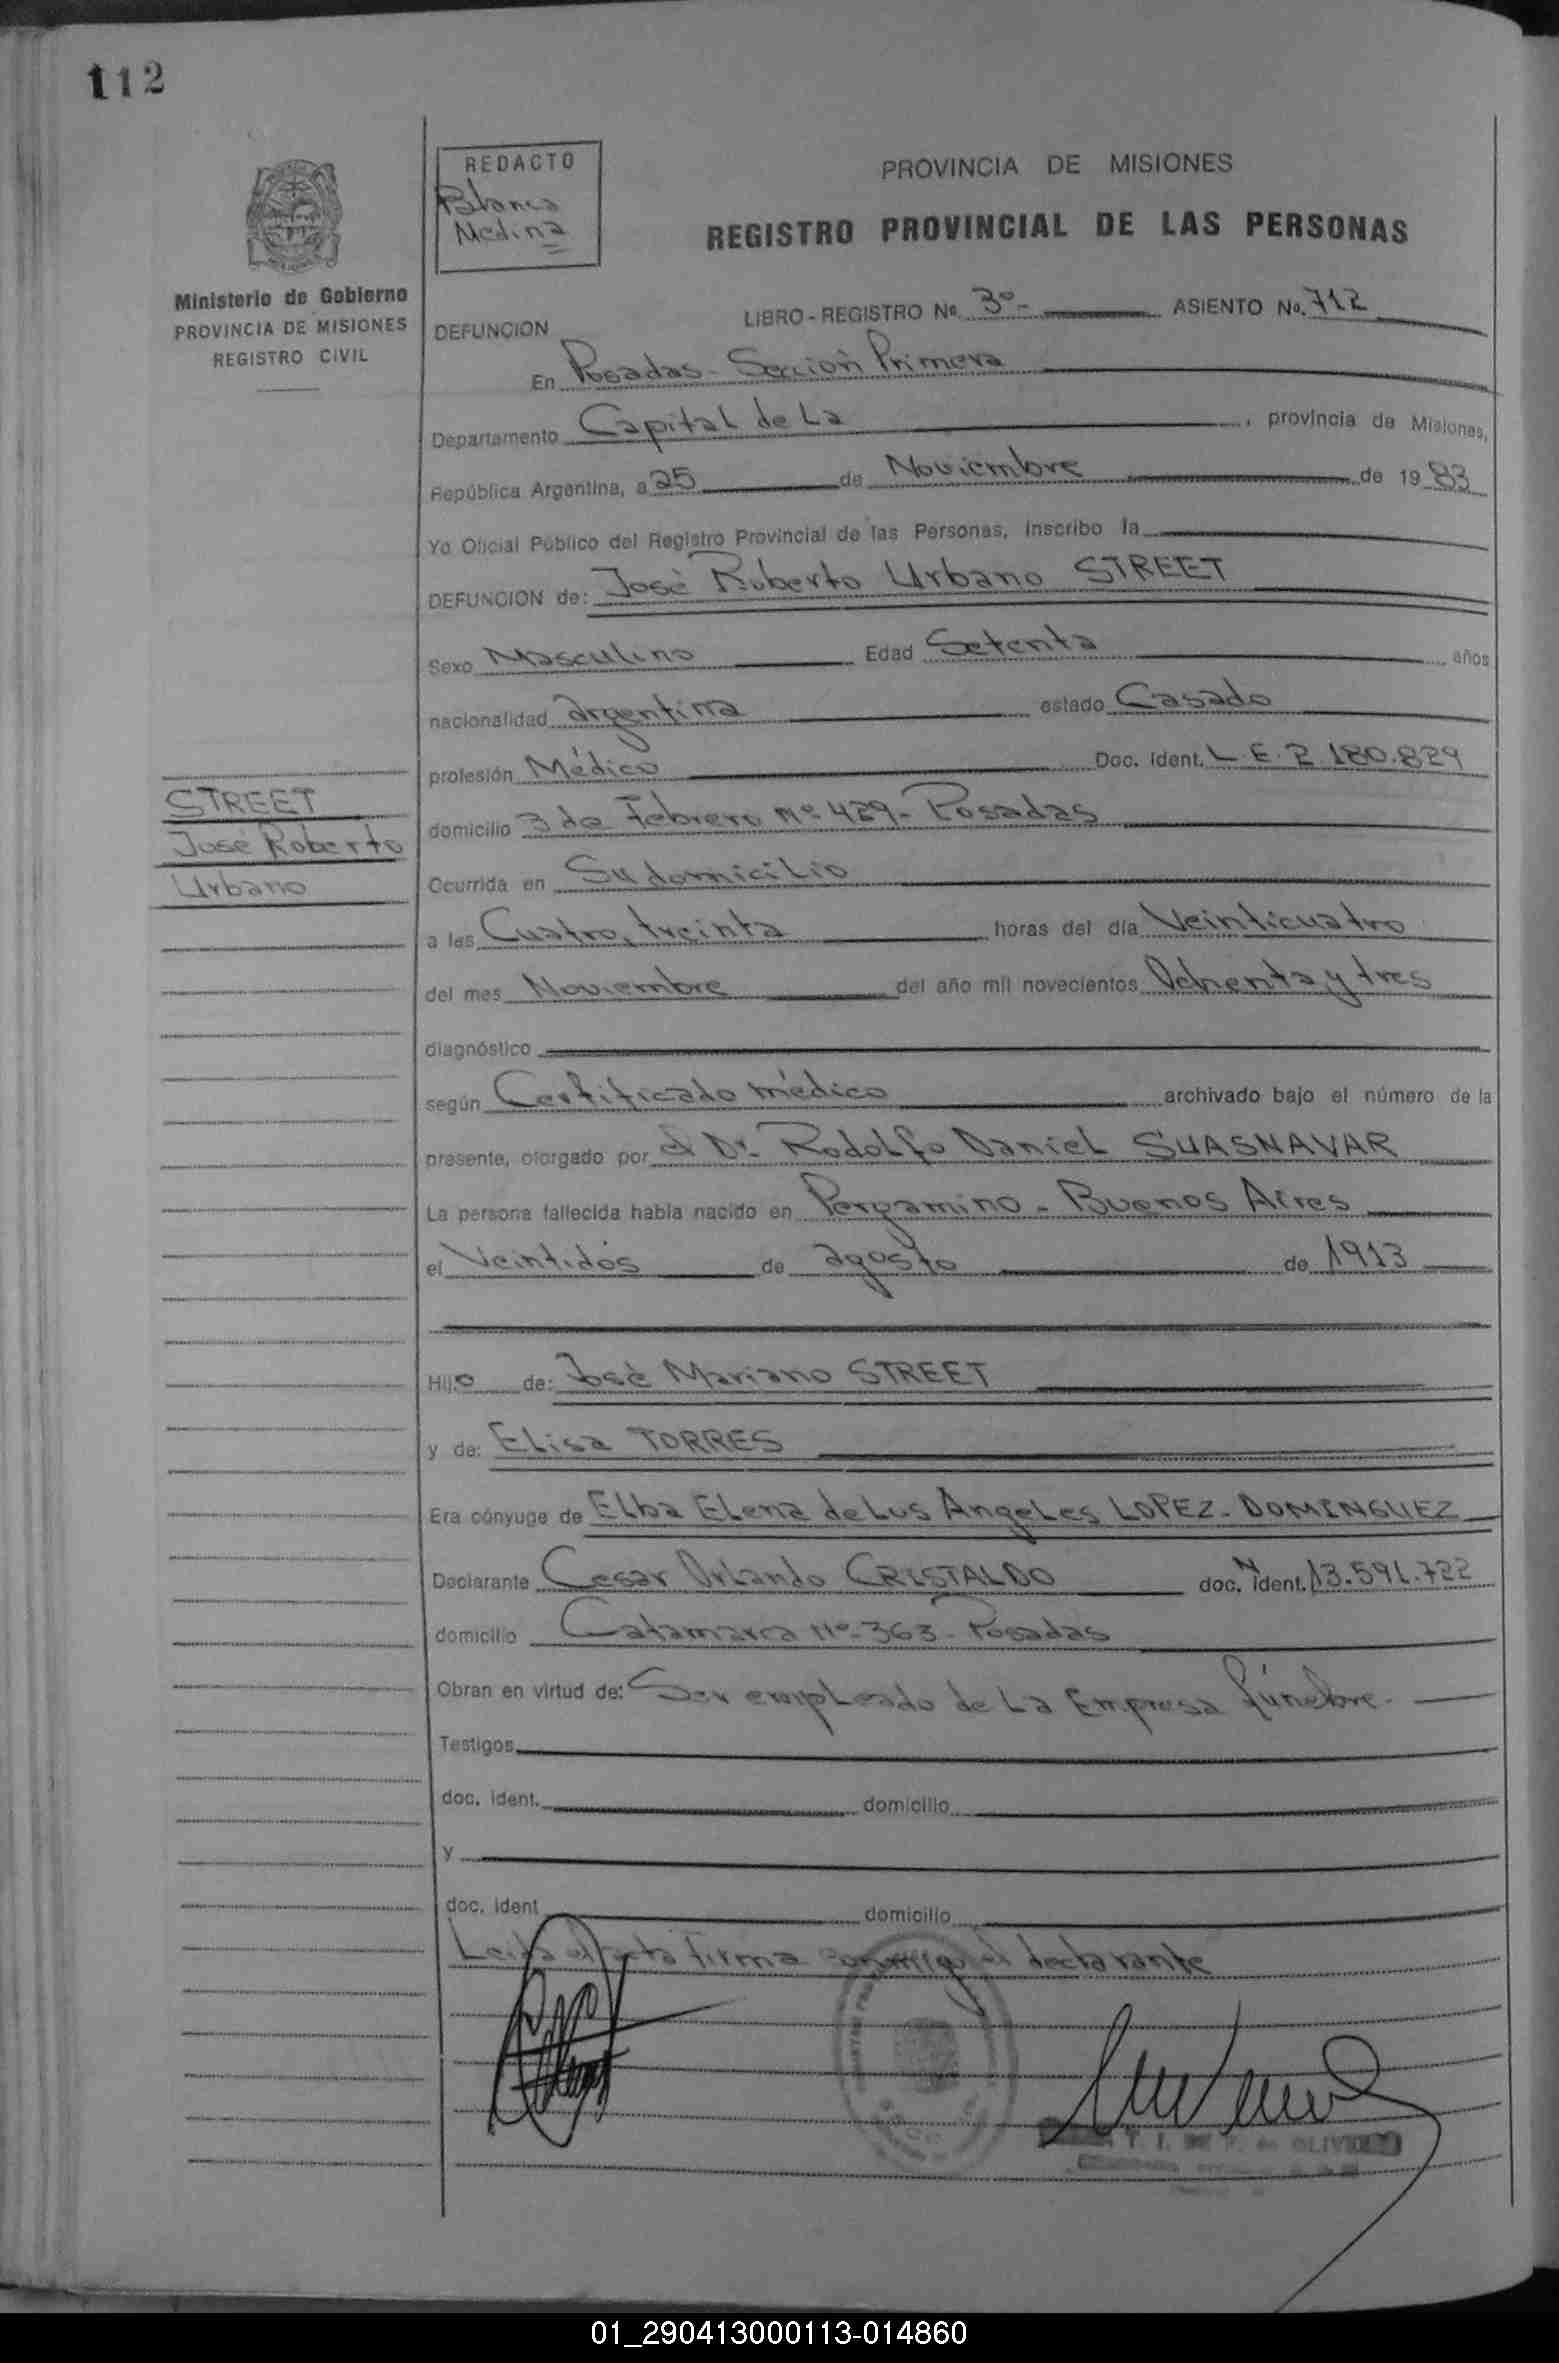 112
REDACTO
Blanca
Medina
PROVINCIA DE MISIONES
REGISTRO PROVINCIAL DE LAS PERSONAS
Ministerio de Gobierno
PROVINCIA DE MISIONES
REGISTRO CIVIL
DEFUNCION
LIBRO - REGISTRO No. 3º- ASIENTO No. 712
En Posadas - Sección Primera
Departamento Capital de La , provincia de Misiones,
República Argentina, a 25 de Noviembre de 1983
Yo Oficial Público del Registro Provincial de las Personas, inscribo la
DEFUNCION de: José Roberto Urbano STREET
Sexo Masculino Edad Setenta años
nacionalidad argentina estado Casado
profesión Médico Doc. Ident. L.E. 2.180.829
STREET
José Roberto
Urbano
domicilio 3 de Febrero Nº 429- Posadas
Ocurrida en Su domicilio
a las Cuatro, treinta horas del día Veinticuatro
del mes Noviembre del año mil novecientos Ochenta y tres
diagnóstico
según Certificado médico archivado bajo el número de la
presente, otorgado por el Dr. Rodolfo Daniel SUASNAVAR
La persona fallecida había nacido en Pergamino - Buenos Aires
el Veintidós de agosto de 1913
Hijo de: José Mariano STREET
y de: Elisa TORRES
Era cónyuge de Elba Elena de Los Angeles LOPEZ - DOMINGUEZ
Declarante Cesar Orlando CRISTALDO doc. N Ident. 13.591.722
domicilio Catamarca Nº 363 - Posadas
Obran en virtud de: Ser empleado de La Empresa fúnebre. -
Testigos
doc. ident. domicilio
y
doc. ident domicilio
Leida el acta firma conmigo el declarante
OLIVERA
01_290413000113-014860